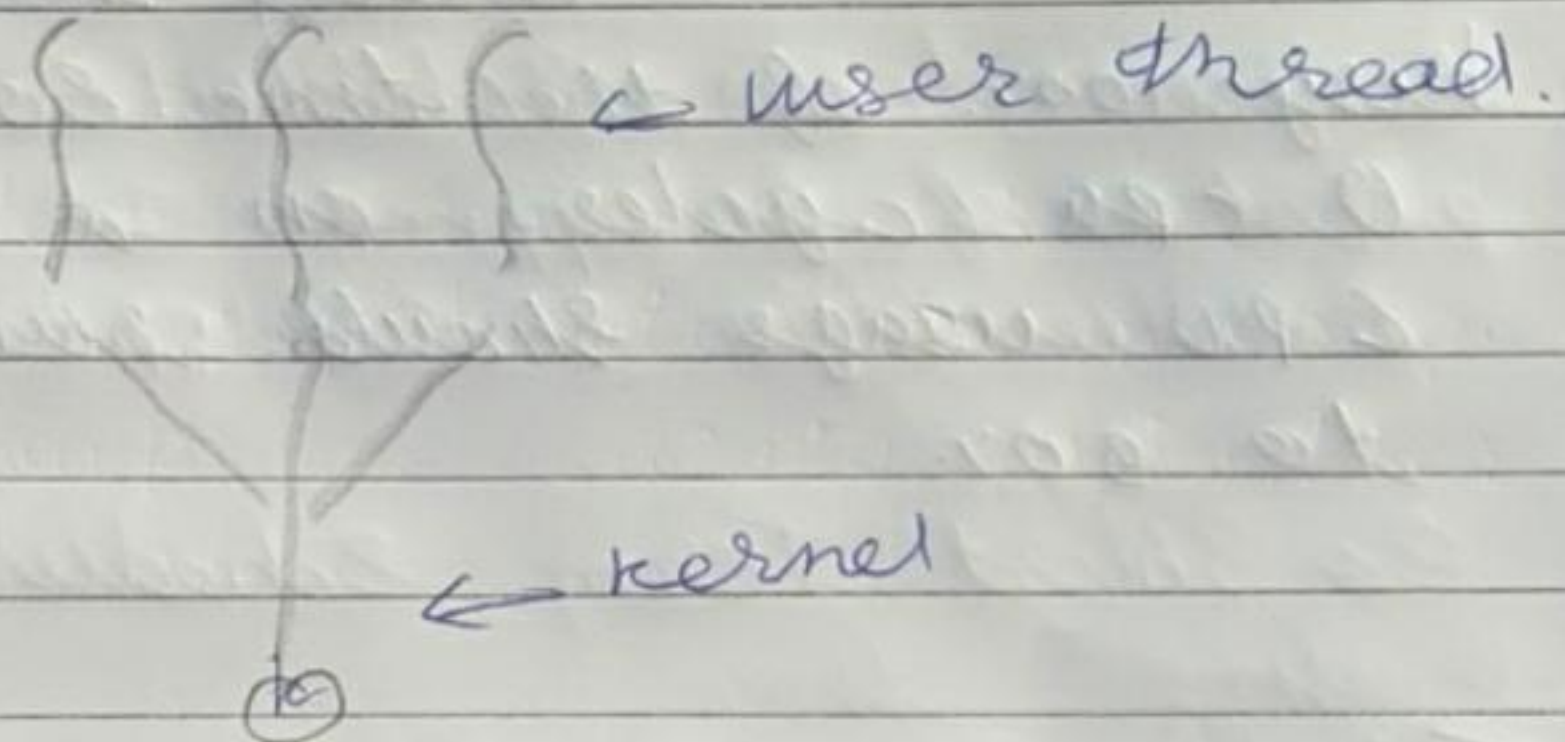 user thread.
kernel
k